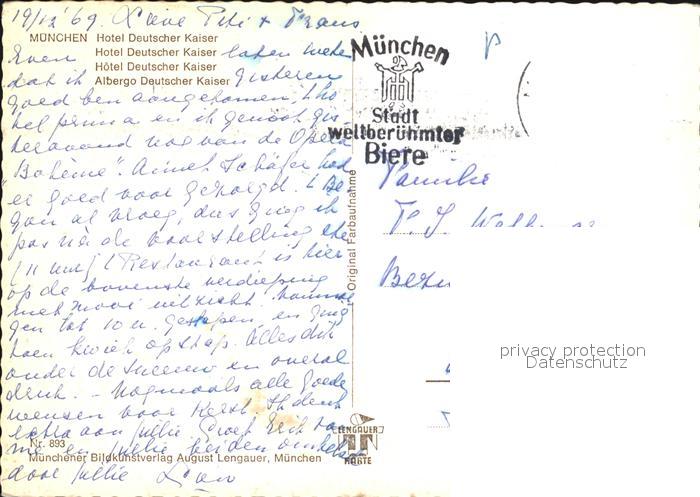 19/12 '69. Lieve Piti + Frans
MÜNCHEN Hotel Deutscher Kaiser
Hotel Deutscher Kaiser
Hôtel Deutscher Kaiser
Albergo Deutscher Kaiser
Even laten weten
dat ik gisteren
goed ben aangekomen. 't Ho
tel prima en ik genoot gis-
teravond nog van de Opera
"Bohème". Annet Schäfer had
er goed voor gezorgd. 't Be-
gon al vroeg, dus ging ik
pas na de voorstelling eten
(11 uur). 't Restaurant is hier
op de bovenste verdieping
met mooi uitzicht.
gen tot 10 u. geslapen en ging
toen kwiek op stap. Alles dik
onder de sneeuw en overal
druk. - Nogmaals alle goede
wensen voor Kerst. Ik denk
extra aan jullie. Groet Erik van
me en jullie beiden omhelsd
door jullie
Nr. 893
Münchener Bildkunstverlag August Lengauer, München
Original Farbaufnahme
LENGAUER
KARTE
München
Stadt
weltberühmter
Biere
P
Familie
privacy protection
Datenschutz